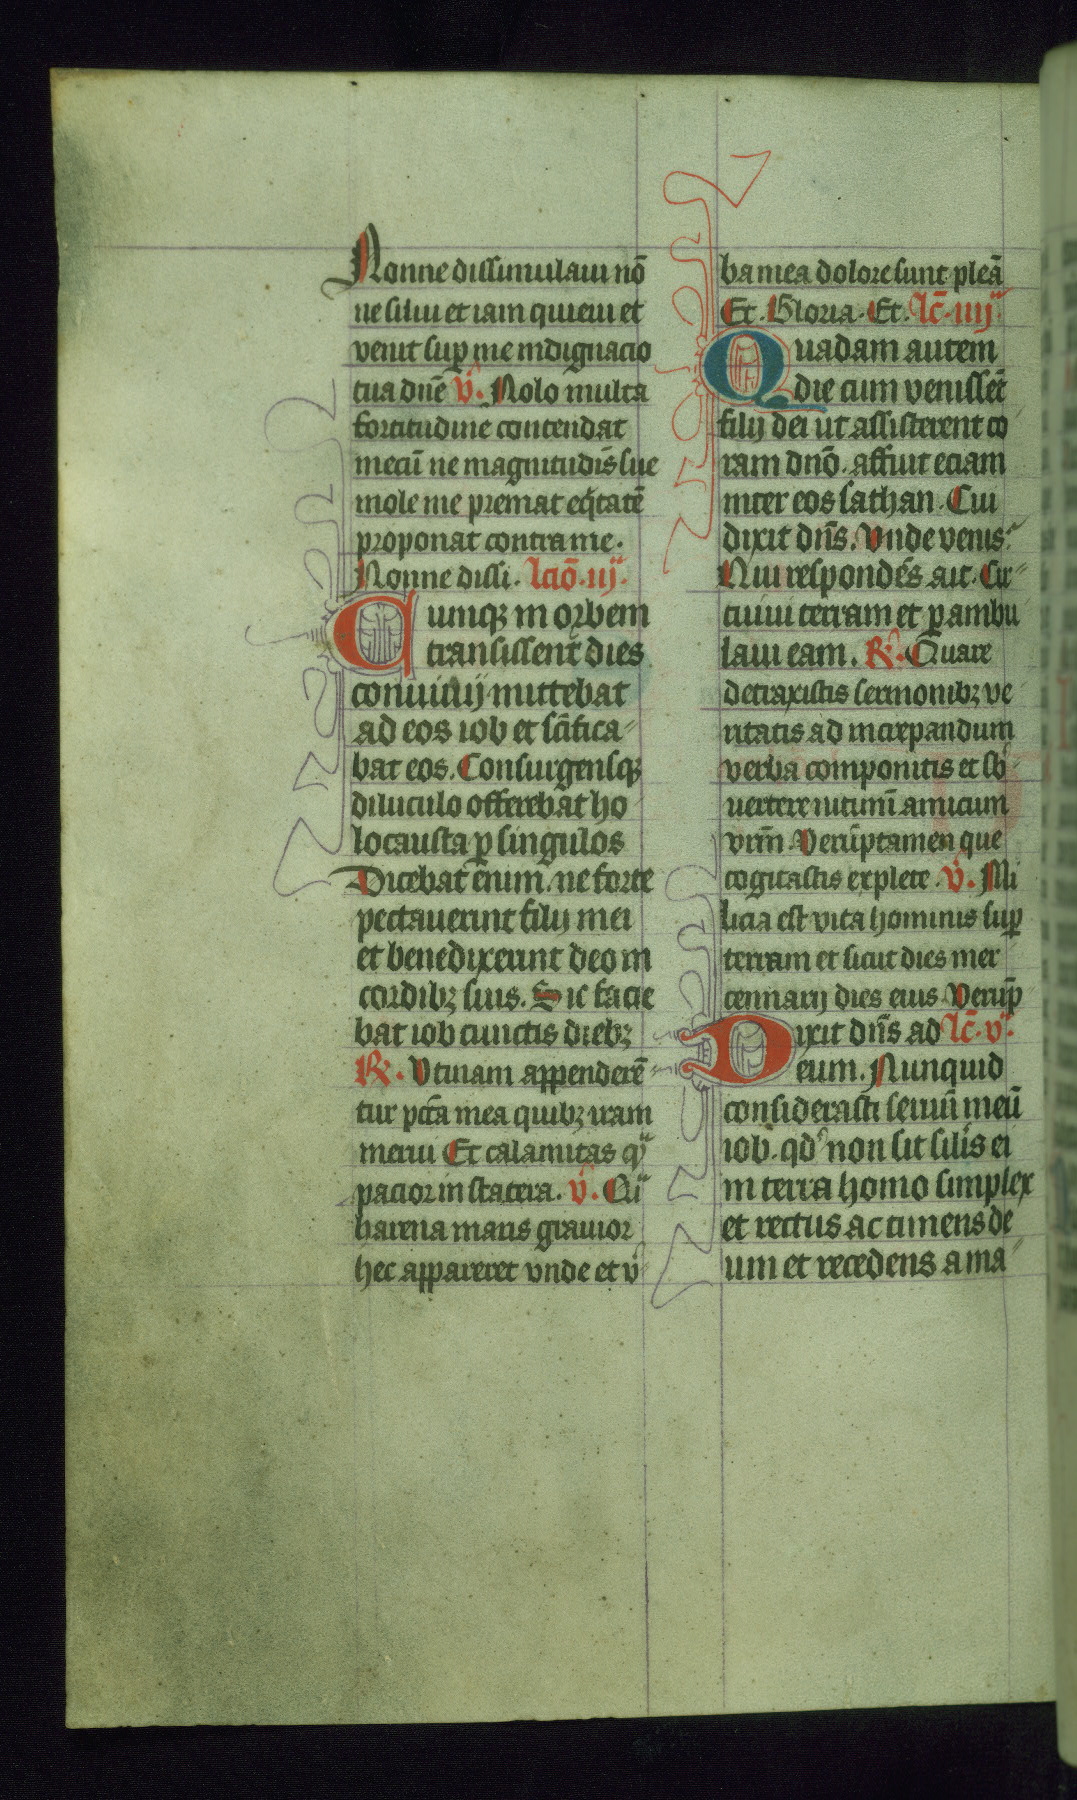 Nonne dissimulaui nō
ne silui et iam quieui et
venit suꝑ me indignacio
tua dn̄e v̄. Nolo multa
fortitudine contendat
mecū ne magnitudīs sue
mole me premat eq̇tatē
proponat contra me.
Nonne dissi. lctō. iij.
Cumqꝫ in orbem
transissent dies
conuiuij mittebat
ad eos iob et sc̄ifica-
bat eos. Consurgensqꝫ
diluculo offerebat ho
locausta ꝑ singulos
Dicebat enim. ne forte
peccauerint filij mei
et benedixerint deo in
cordibꝫ suis. Sic facie
bat iob cunctis diebꝫ
R̄. Vtinam appenderē-
tur pcc̄a mea quibꝫ iram
merui Et calamitas qͣ
pacior in statera. v̄. Qͣi
harena maris grauior
hec appareret vnde et v̾
ba mea dolore sunt plenā
Et. Gloria. Et. lc̄. iiij.
Quadam autem
die cum venissēt
filij dei ut assisterent co
ram dn̄o. affuit eciam
inter eos sathan. Cui
dixit dn̄s. Vnde venis?
Qui respondēs ait. Cir-
cuiui terram et ꝑambu
laui eam. R̄. Quare
detraxistis sermonibꝫ ve
ritatis ad increpandum
verba componitis et sb̾
uertere nitimī amicum
vr̄m. Verūptamen que
cogitastis explete. v̄. Mi
licia est vita hominis suꝑ
terram et sicut dies mer
cennarij dies eius. Verūp̄
Dixit dn̄s ad lc̄. v.
eum. Nunquid
considerasti seruū meū
iob. qd̾ non sit silīs ei
in terra homo simplex
et rectus ac timens de
um et recedens a ma-